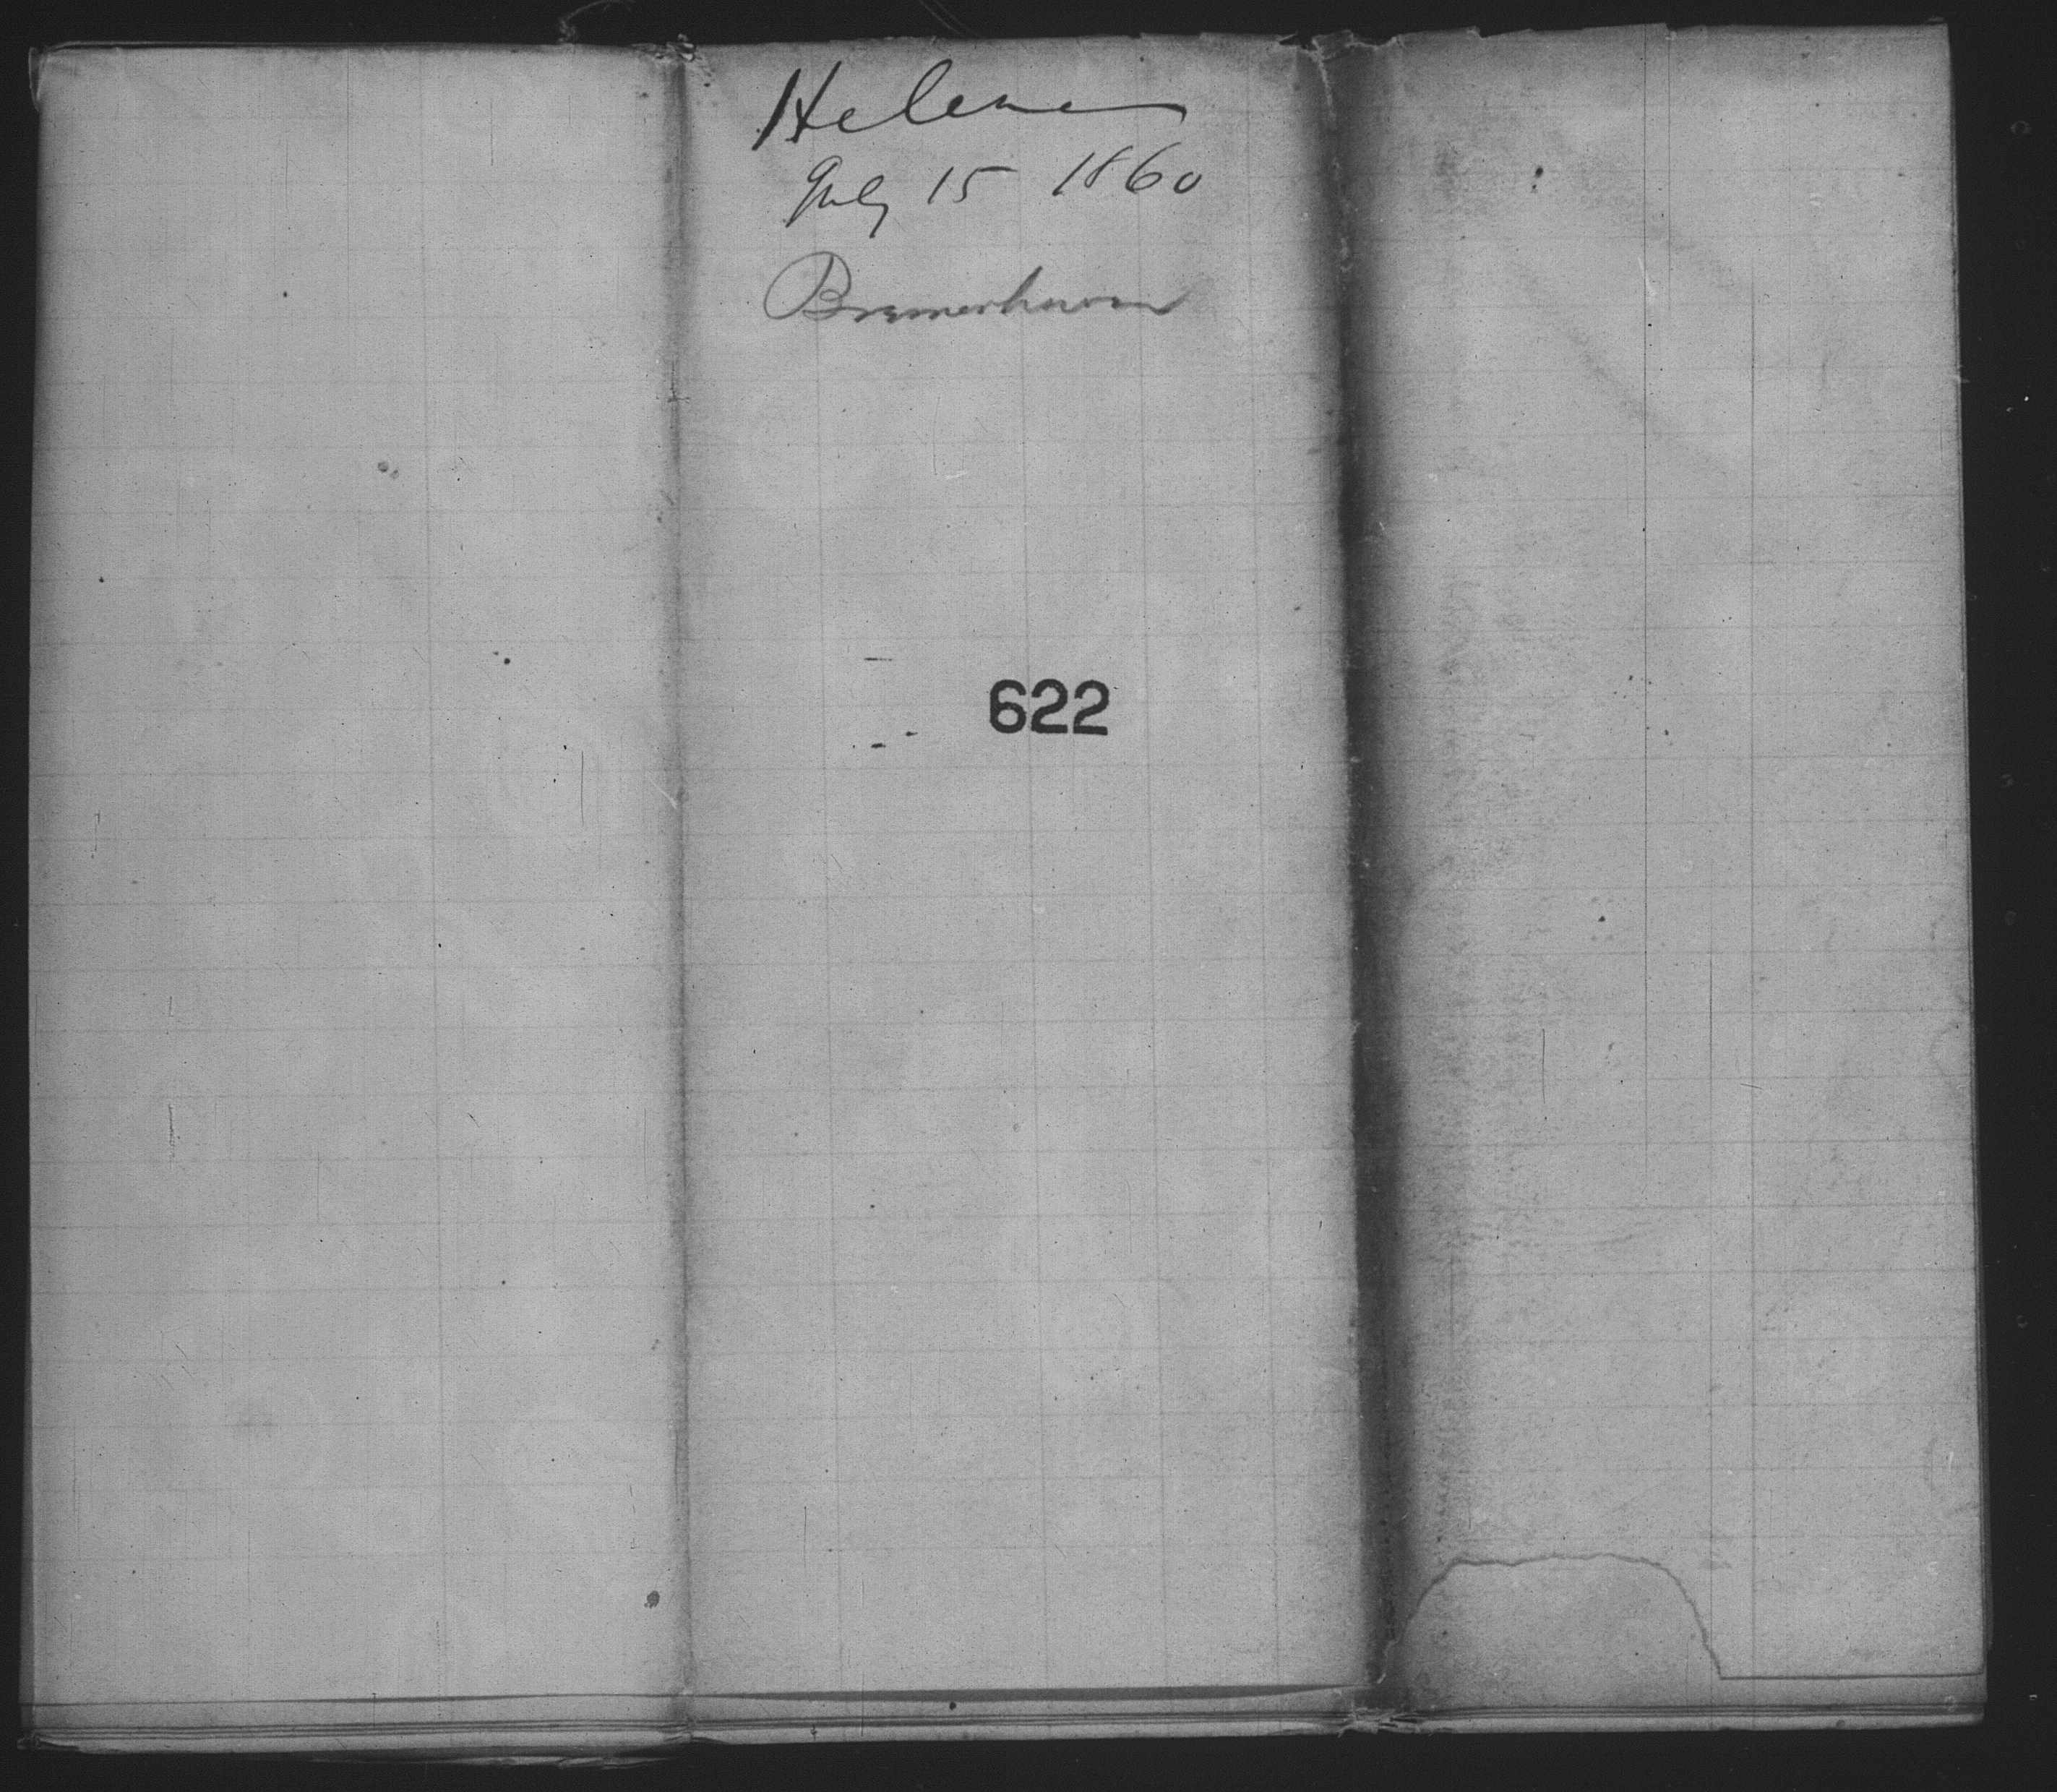 Helena
July 15 1860
Bremerhaven
622